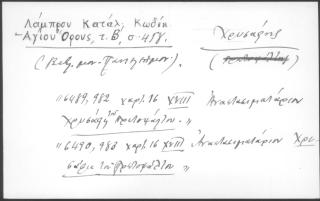 Λάμπρου Κατάλ, Κωδίκ
Αγίου Όρους, τ. Β', σ. 458. Χρυσάφης
(Βιβ. μον. Παντελεήμον). (Πρωτοψάλτης)
"6489, 982 χαρτ. 16 XVIII Αναστασιματάριον
Χρυσάφη του Πρωτοψάλτου. "
"6490, 983 χαρτ. 16 XVIII Αναστασιματάριον Χρυ-
σάφη του Πρωτοψάλτου "